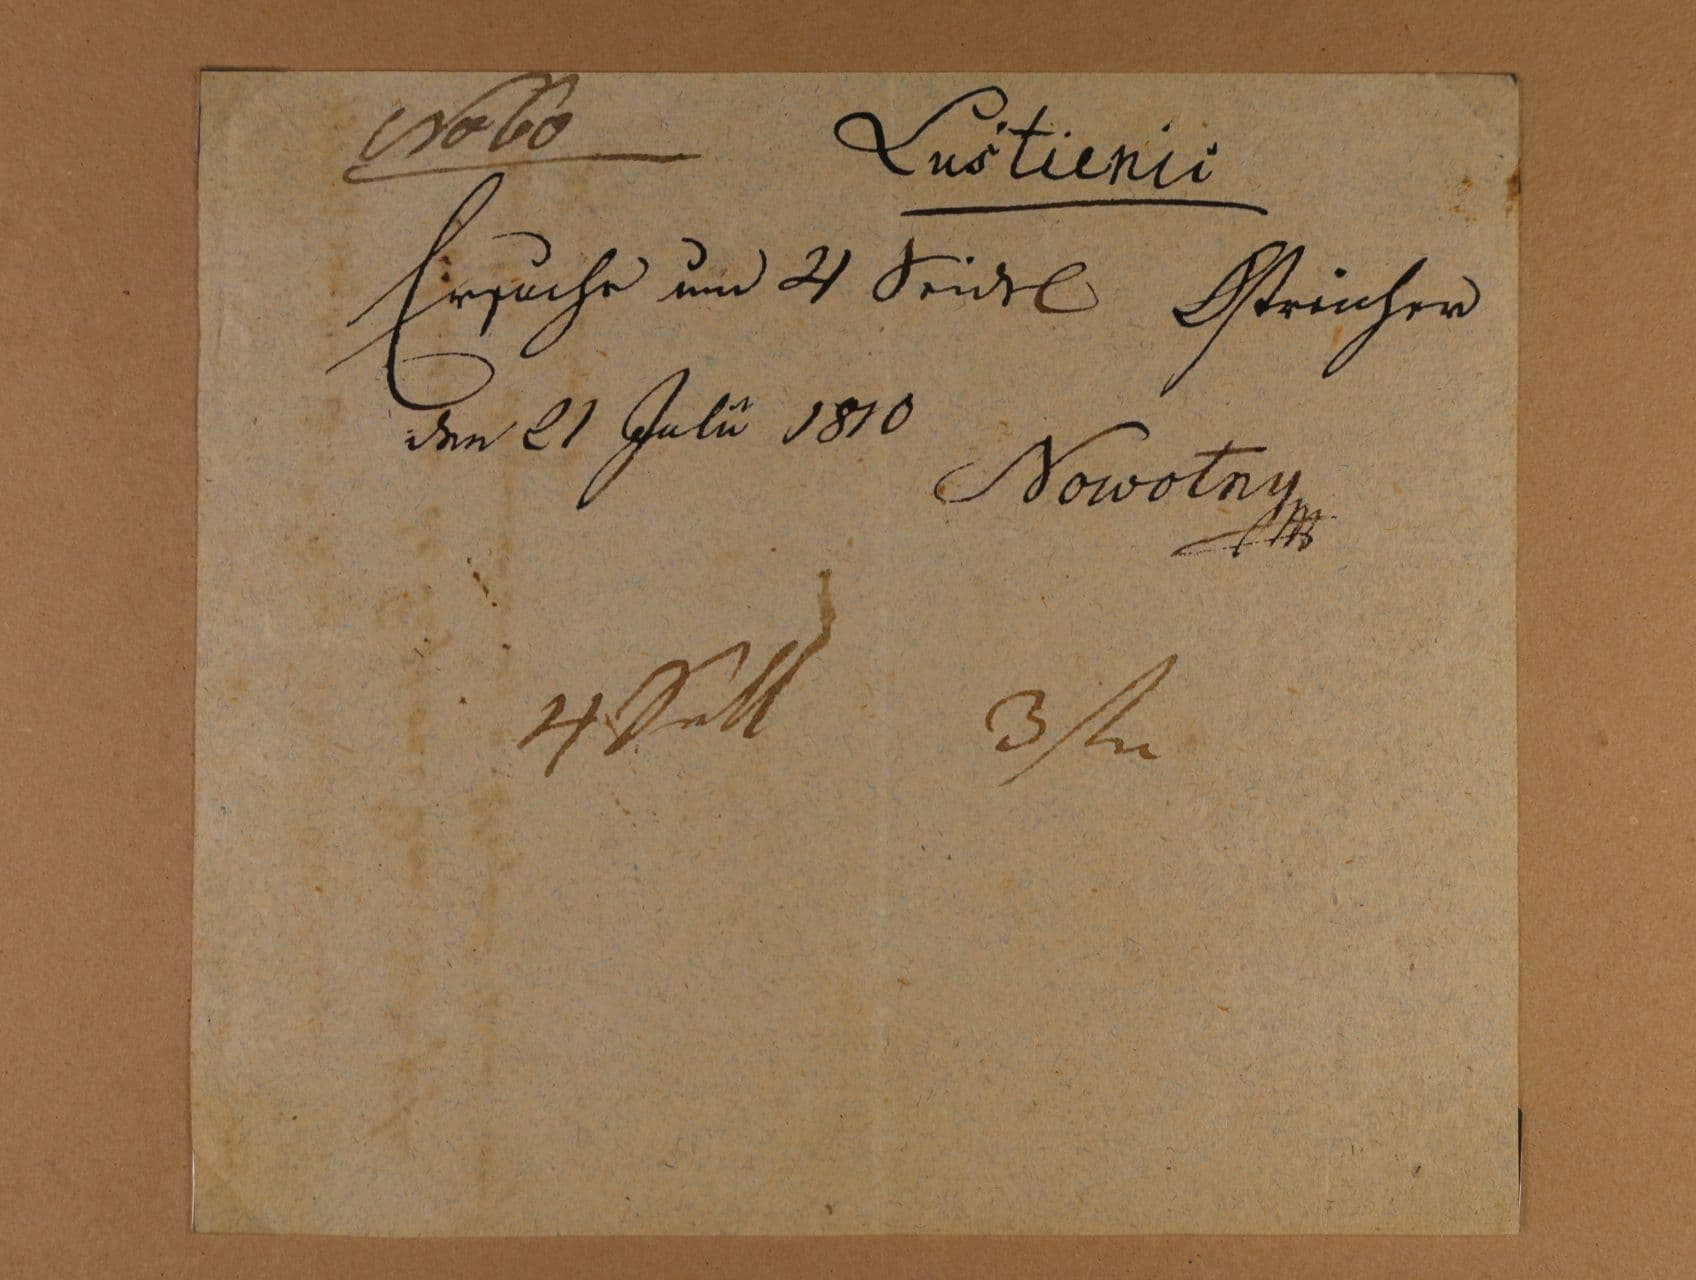 No 60 Luštienii
Ersuche um 4 Seidel Östreicher
den 21 Julii 1810
Nowotny
4 Seitl 3